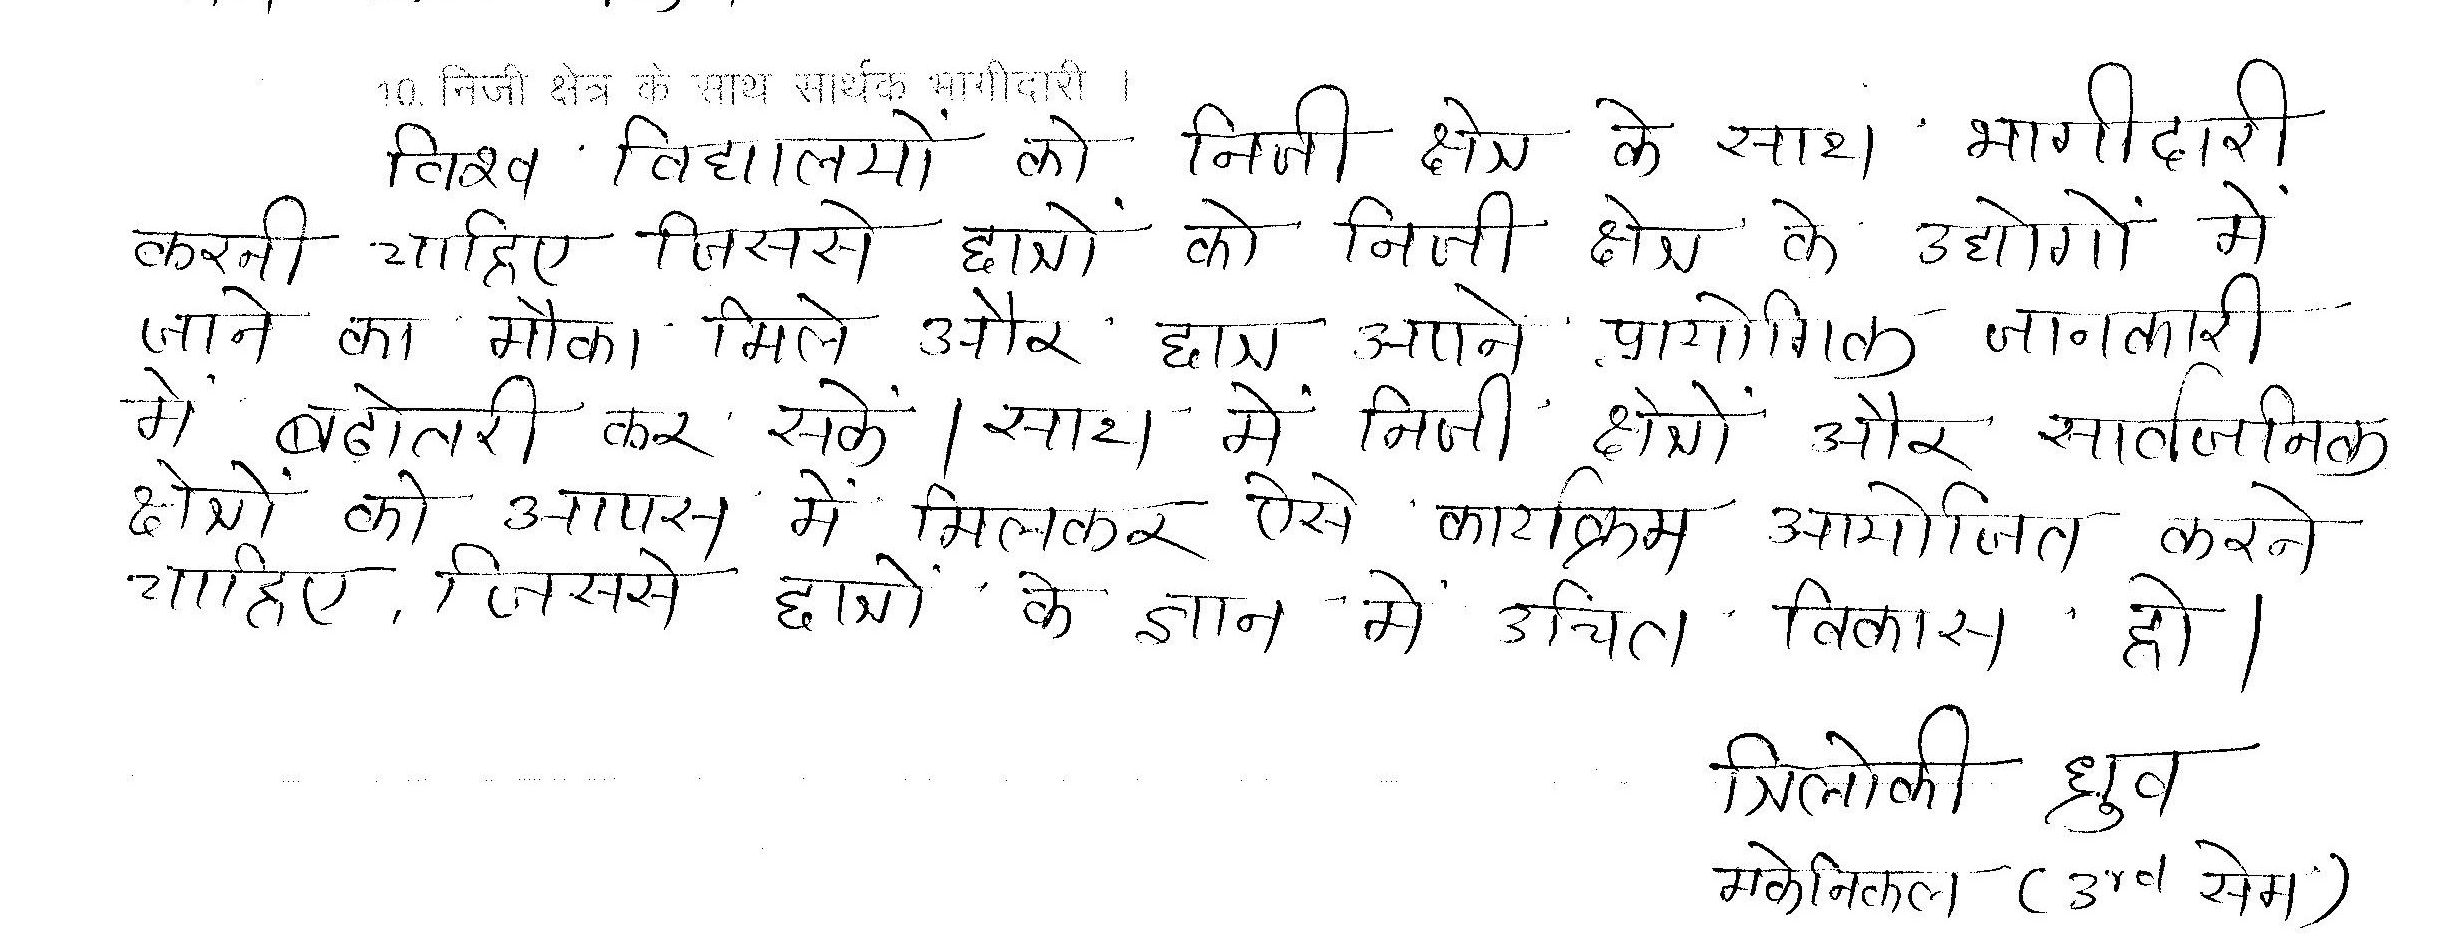 10. निजी क्षेत्र के साथ सार्थक भागीदारी ।
विश्व विद्यालयों को निजी क्षेत्र के साथ भागीदारी
करनी चाहिए जिससे छात्रों को निजी क्षेत्र के उद्योगों में
जाने का मौका मिले और छात्र अपने प्रायोगिक जानकारी
में बढोतरी कर सकें । साथ में निजी क्षेत्रों और सार्वजनिक
क्षेत्रों को आपस में मिलकर ऐसे कार्यक्रम आयोजित करने
चाहिए, जिससे छात्रों के ज्ञान में उचित विकास हो ।
त्रिलोकी ध्रुव
मकेनिकल (3rd सेम)